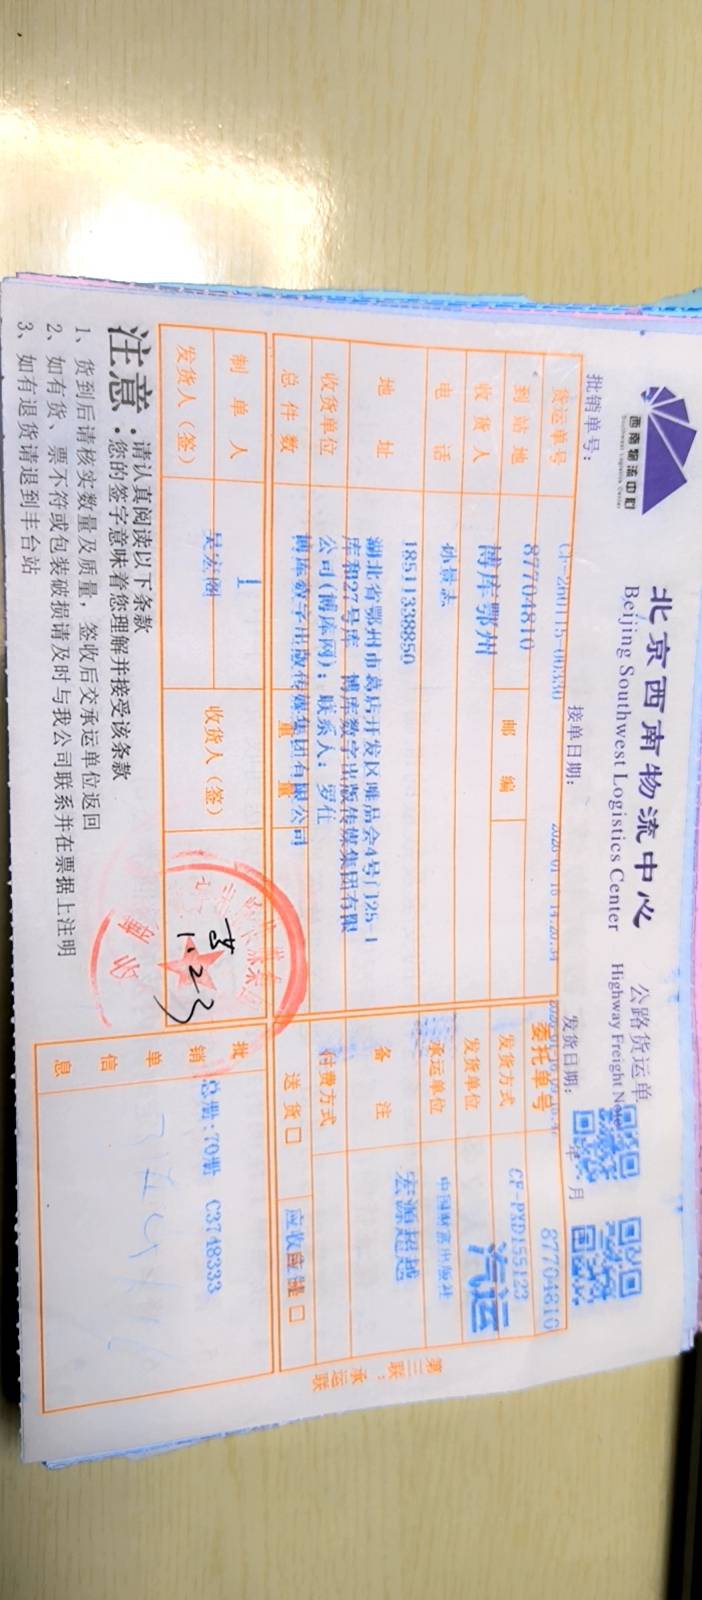 西南物流中心
Southwest Logistics Center
北京西南物流中心
Beijing Southwest Logistics Center
公路货运单
Highway Freight Note
批销单号：
接单日期：
发货日期： 年 月
货运单号
87704810
委托单号
87704810
到站地
博库鄂州
邮编
发货方式
CF-PXD155123
汽运
收货人
孙景志
发货单位
中国财富出版社
电话
18511338850
承运单位
宏源超越
地址
湖北省鄂州市葛店开发区唯品会4号门25-1
库和27号库 博库数字出版传媒集团有限
公司(博库网)；联系人：罗仕
备注
收货单位
博库数字出版传媒集团有限公司
付费方式
总件数
1
重量
送货口
制单人
吴宏图
收货人（签）
1.23
发货人（签）
批销单信息
总册:70册 C3748333
第三联：承运联
注意：
请认真阅读以下条款
您的签字意味着您理解并接受该条款
1、货到后请核实数量及质量，签收后交承运单位返回
2、如有货、票不符或包装破损请及时与我公司联系并在票据上注明
3、如有退货请退到丰台站